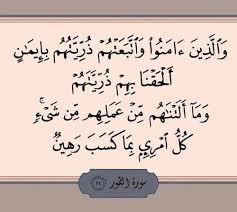 وَٱلَّذِينَ ءَامَنُوا۟ وَٱتَّبَعَتْهُمْ ذُرِّيَّتُهُم بِإِيمَـٰنٍ
أَلْحَقْنَا بِهِمْ ذُرِّيَّتَهُمْ
وَمَآ أَلَتْنَـٰهُم مِّنْ عَمَلِهِم مِّن شَىْءٍۚ
كُلُّ ٱمْرِئٍۭ بِمَا كَسَبَ رَهِينٌ
سورة الطور ٢١